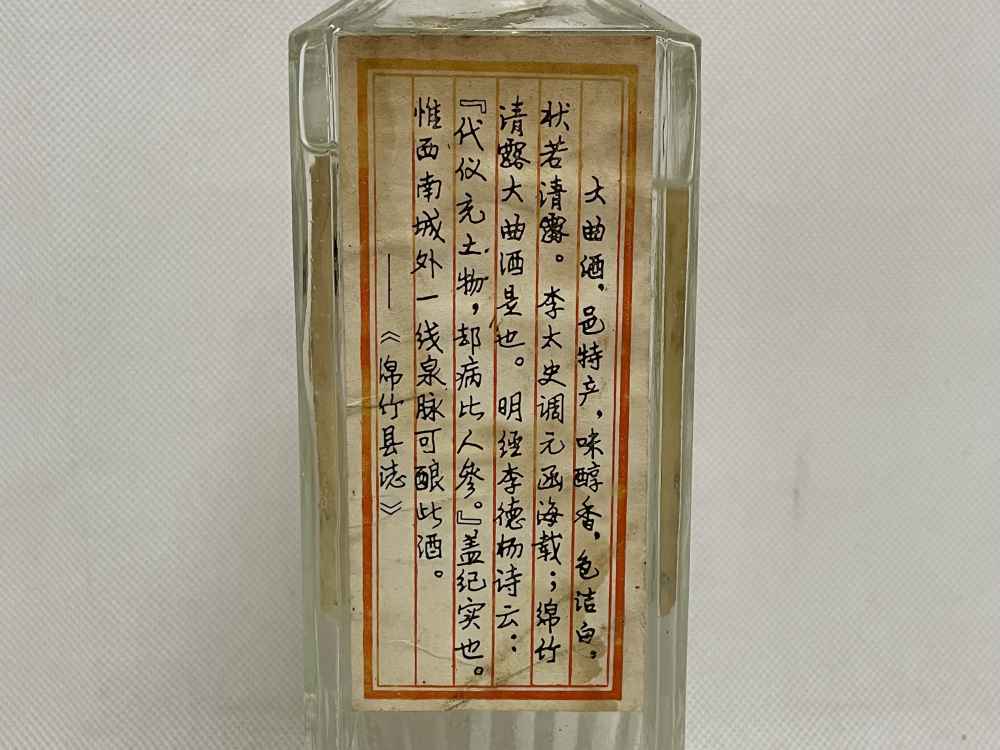 大曲酒，邑特产，味醇香，色洁白，
状若清露。李太史调元函海载；绵竹
清露大曲酒是也。明经李德杨诗云：
『代仪充土物，却病比人参。』盖纪实也。
惟西南城外一线泉脉可酿此酒。
——《绵竹县志》